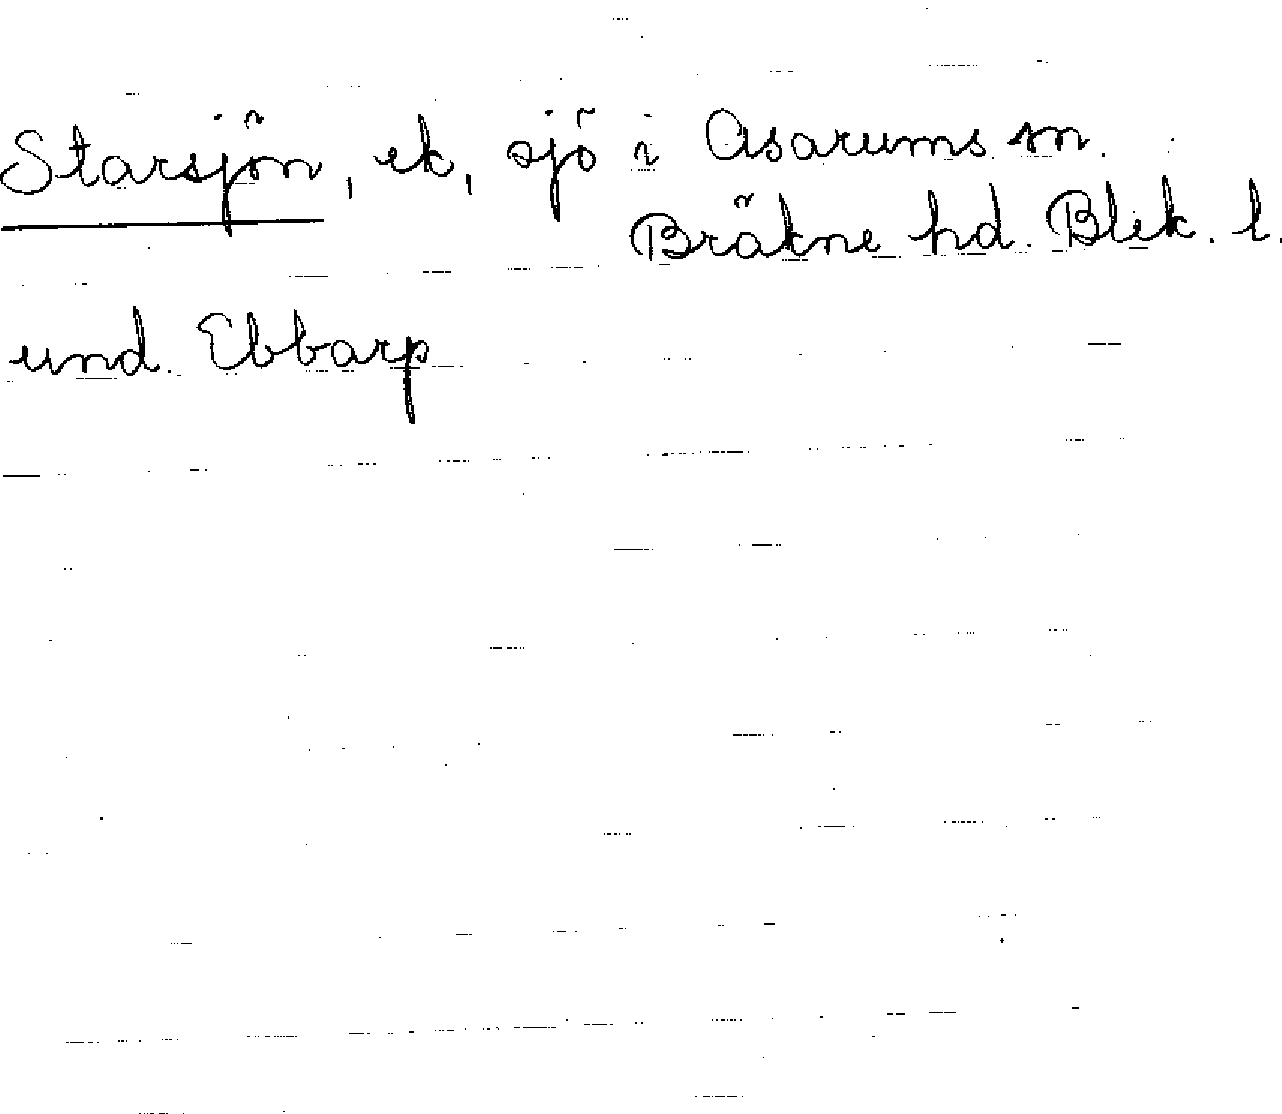 Starsjön, ek, sjö i Asarums sn.
Bräkne hd. Blek. l.
und. Ebbarp